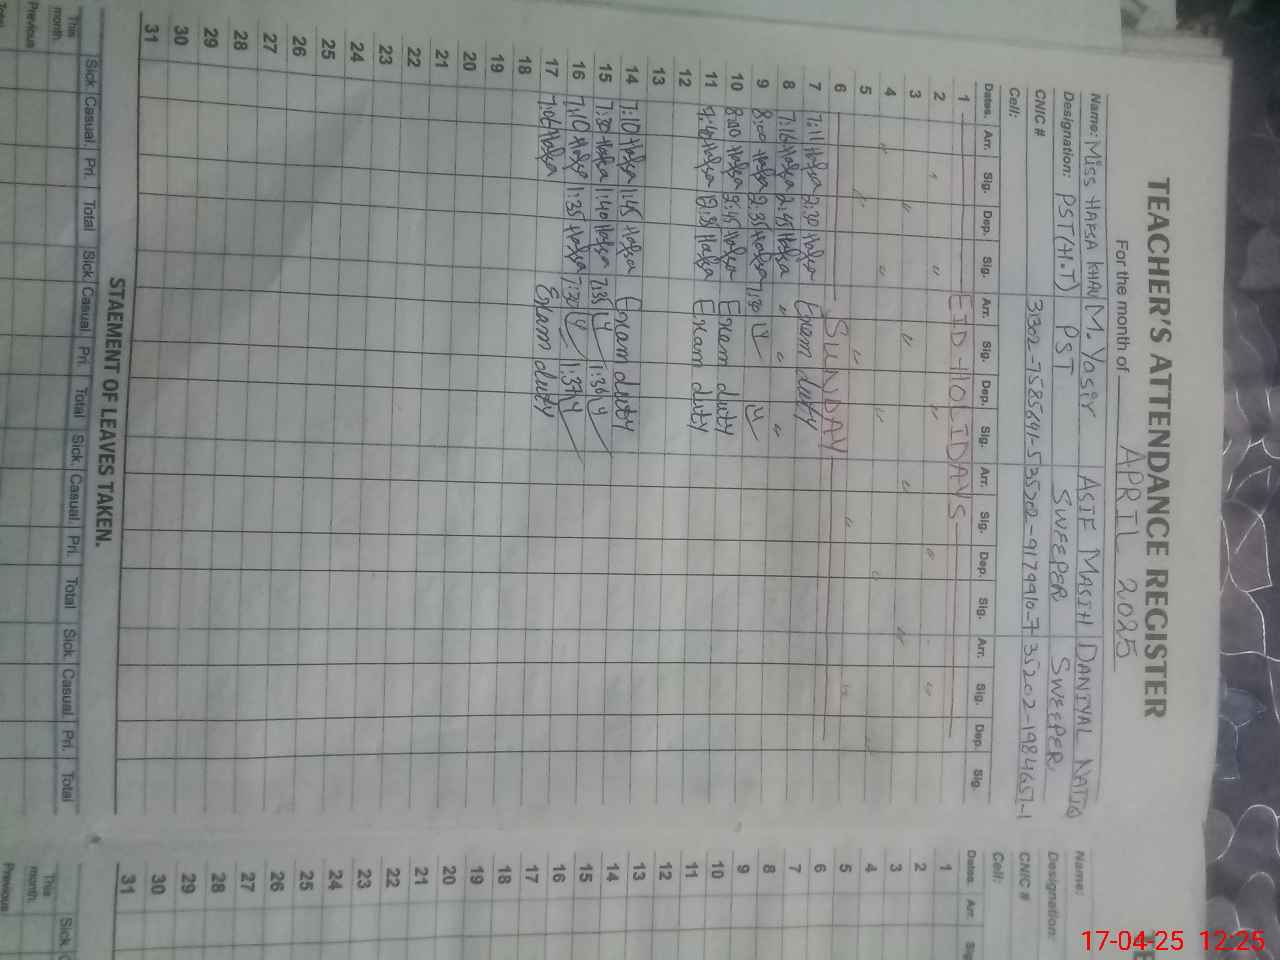 TEACHER'S ATTENDANCE REGISTER
For the month of APRIL 2025
Name: Miss HAFSA KHAN M. Yasir ASIF MASIH DANIYAL
Designation: PST PST SWEEPER SWEEPER
CNIC # 31302-7585691-5 35202-9179910-7 35202-1984657-1
Cell:
Dates. Arr. Sig. Dep. Sig. Arr. Sig. Dep. Sig. Arr. Sig. Dep. Sig. Arr. Sig. Dep. Sig.
1 EID HOLIDAYS
2 " " " " "
3 " " " "
4 " " " " "
5 " " " "
6 SUNDAY
7 7:11 Hafsa 2:30 Hafsa Exam duty
8 7:16 Hafsa 2:45 Hafsa " " "
9 8:00 Hafsa 2:35 Hafsa 7:30
10 8:00 Hafsa 2:45 Hafsa Exam duty
11 Hafsa Hafsa Exam duty
12
13
14 7:10 Hafsa 1:45 Hafsa Exam duty
15 7:30 Hafsa 1:40 Hafsa 7:35 1:36
16 7:10 Hafsa 1:35 Hafsa 7:30 1:37
17 7:06 Hafsa Exam duty
18
19
20
21
22
23
24
25
26
27
28
29
30
31
STAEMENT OF LEAVES TAKEN.
Sick. Casual. Pri. Total Sick. Casual. Pri. Total Sick. Casual. Pri. Total Sick. Casual Pri. Total
This month.
Previous
Total
TE
Name:
Designation:
CNIC #
Cell:
Dates. Arr.
1
2
3
4
5
6
7
8
9
10
11
12
13
14
15
16
17
18
19
20
21
22
23
24
25
26
27
28
29
30
31
Sick.
This month.
Previous
17-04-25 12:25